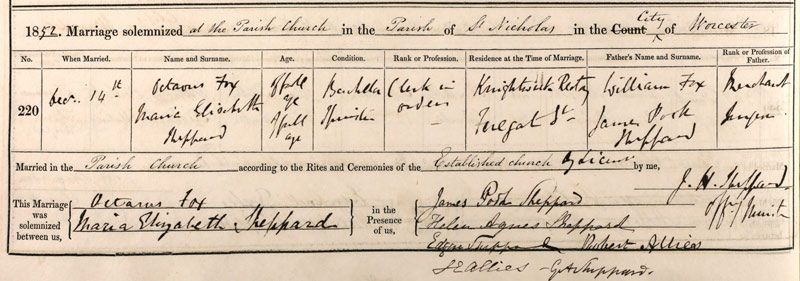 1852. Marriage solemnized at the Parish Church in the Parish of St Nicholas in the Count City of Worcester
No. When Married. Name and Surname. Age. Condition. Rank or Profession. Residence at the Time of Marriage. Father's Name and Surname. Rank or Profession of Father.
220 Decr. 14th Octavus Fox Of full age Bachelor Clerk in orders Knightwick Rectory William Fox Merchant
Maria Elizabeth Sheppard Of full age Spinster Foregat St James Posh Sheppard Surgeon
Married in the Parish Church according to the Rites and Ceremonies of the Established church by licence by me,
J. H. Sheppard
Offg Minist
This Marriage was solemnized between us, Octavus Fox
Maria Elizabeth Sheppard
in the Presence of us, James Posh Sheppard
Helen Agnes Sheppard
Edgar Sheppard Robert Allies
J E Allies - G A Sheppard.